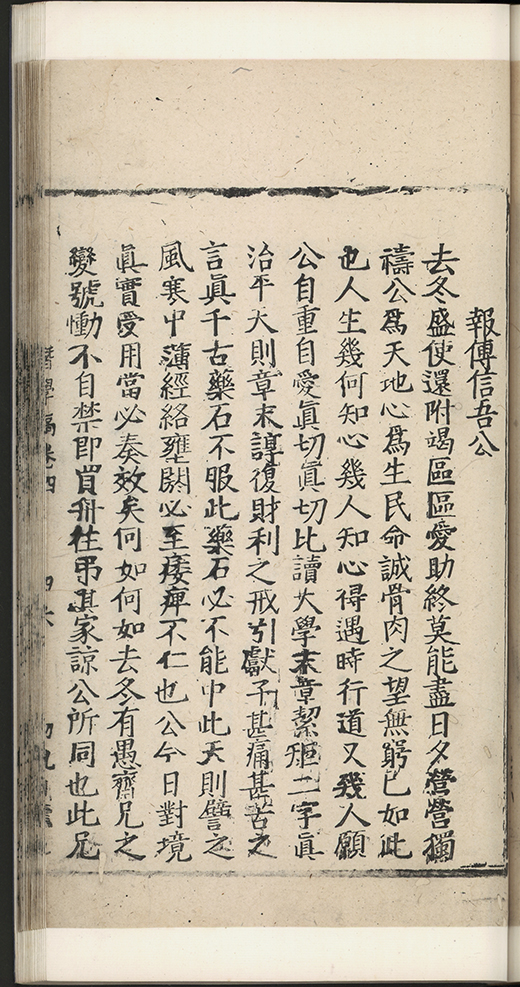 報傅信吾公
去冬盛使還附竭區區愛助終莫能盡日夕營營獨
禱公爲天地心爲生民命誠骨肉之望無窮已如此
也人生幾何知心幾人知心得遇時行道又幾人願
公自重自愛眞切眞切比讀大學末章絜矩二字眞
治平大則章末諄復財利之戒引獻子甚痛甚苦之
言眞千古藥石不服此藥石必不能中此天則譬之
風寒中薄經絡壅閼必至痿痺不仁也公今日對境
眞實受用當必奏效矣何如何如去冬有愚齋兄之
變號慟不自禁卽買舟往弔其家諒公所同也此兄
學 卷四
四六